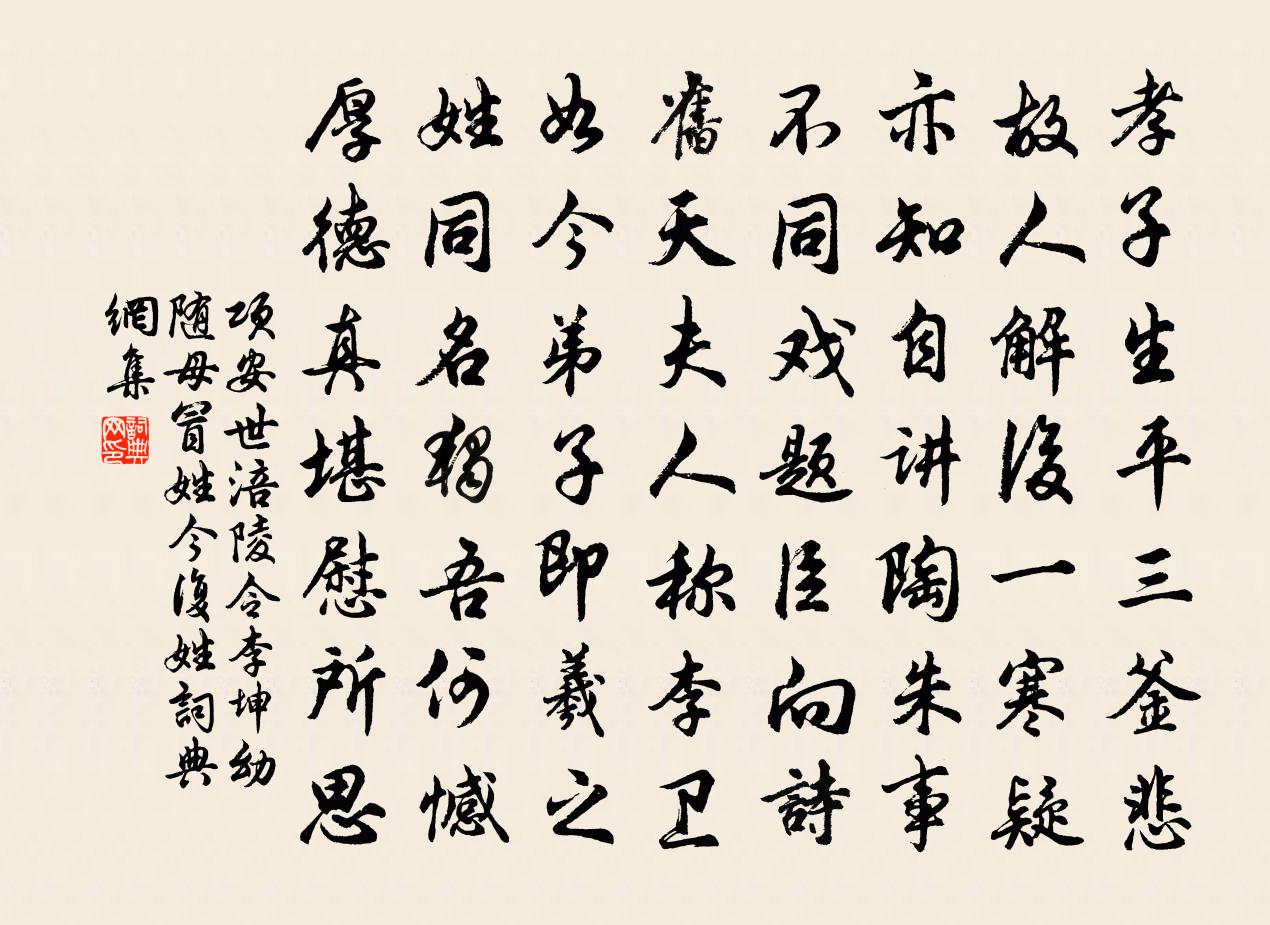 孝子生平三釜悲
故人解復一寒疑
亦知自讲陶朱事
不同戏题臣向詩
舊天夫人称李卫
如今弟子即羲之
姓同名独吾何憾
厚德真堪慰所思
项安世涪陵令李坤幼
随母冒姓今復姓詞典
網集
詞典网印